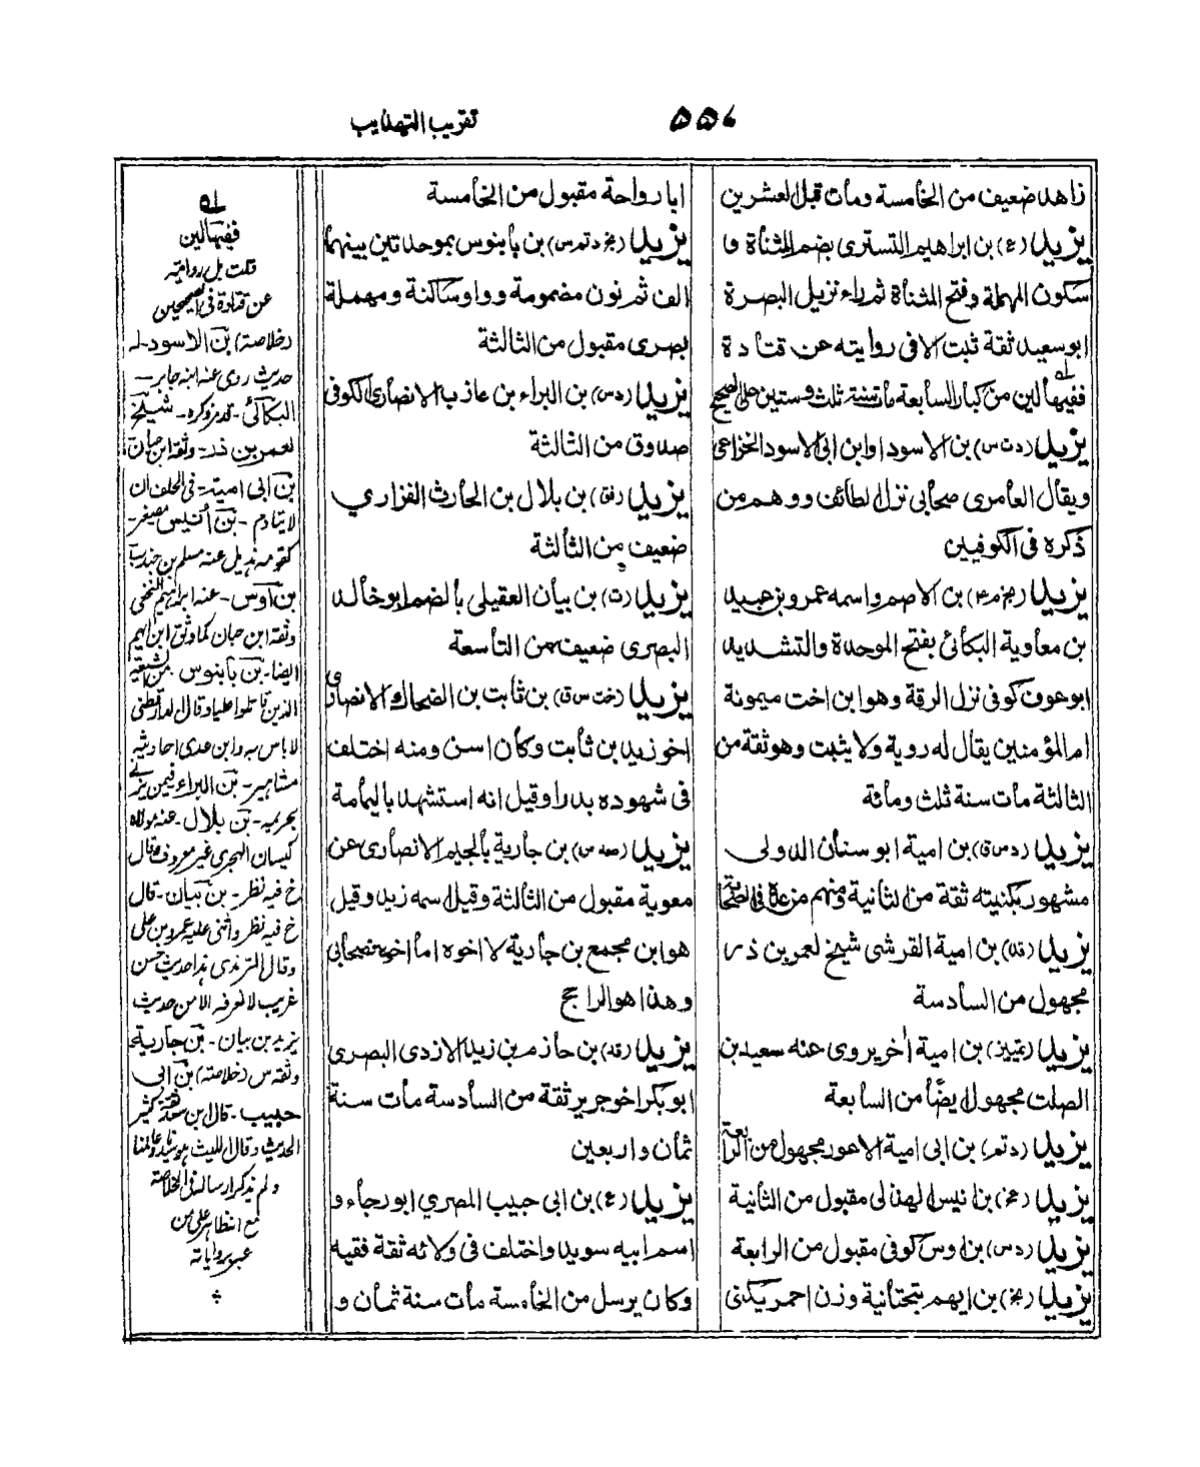 تقريب التهذيب
٥٥٤
زاهد ضعيف من الخامسة ومات قبل العشرين
يزيد (ع) بن ابراهيم التسترى بضم المثناة و
سكون المهملة وفتح المثناة ثم راء نزيل البصرة
ابو سعيد ثقة ثبت الا فى روايته عن قتادة
ففيها لين من كبار السابعة مات سنة ثلث وستين على الصحيح
يزيد (دت س) بن الاسود او ابن ابى الاسود الخزاعى
ويقال العامرى صحابى نزل الطائف ووهم من
ذكره فى الكوفيين
يزيد (بخ م ٤) بن الاصم واسمه عمرو بن عبيد
بن معاوية البكائى بفتح الموحدة والتشديد
ابو عوف كوفى نزل الرقة وهو ابن اخت ميمونة
ام المؤمنين يقال له روية ولا يثبت وهو ثقة من
الثالثة مات سنة ثلث ومائة
يزيد (د س ق) بن امية ابو سنان الدولى
مشهور بكنيته ثقة من الثانية ومنهم من عده فى الصحابة
يزيد (قد) بن امية القرشى شيخ لعمر بن ذر
مجهول من السادسة
يزيد (تمييز) بن امية اخر يروى عنه سعيد بن
الصلت مجهول ايضًا من السابعة
يزيد (د تم) بن ابى امية الاعور مجهول من الرابعة
يزيد (عخ) بن انيس الهذلى مقبول من الثانية
يزيد (د س) بن اوس كوفى مقبول من الرابعة
يزيد (بخ) بن ايهم بتحتانية وزن احمر يكنى
ابا رواحة مقبول من الخامسة
يزيد (بخ د تم س) بن بابنوس بموحدتين بينهما
الف ثم نون مضمومة وواو ساكنة ومهملة
بصرى مقبول من الثالثة
يزيد (د س) بن البراء بن عازب الانصارى الكوفى
صدوق من الثالثة
يزيد (فق) بن بلال بن الحارث الفزاري
ضعيف من الثالثة
يزيد (ت) بن بيان العقيلى بالضم ابو خالد
البصرى ضعيف من التاسعة
يزيد (خت س ق) بن ثابت بن الضحاك الانصارى
اخو زيد بن ثابت وكان اسن ومنه اختلف
فى شهوده بدرا وقيل انه استشهد باليمامة
يزيد (صد س) بن جارية بالجيم الانصارى عن
معوية مقبول من الثالثة وقيل اسمه زيد وقيل
هو ابن مجمع بن جارية لا اخوه اما اخوه فصحابى
وهذا هو الراجح
يزيد (قد) بن حازم بن زيد الازدى البصرى
ابو بكر اخو جرير ثقة من السادسة مات سنة
ثمان واربعين
يزيد (ع) بن ابى حبيب المصري ابو رجاء و
اسم ابيه سويد واختلف فى ولائه ثقة فقيه
وكان يرسل من الخامسة مات سنة ثمان و
له
ففيها لين
قلت بل روايته
عن قتادة فى الصحيحين
(خلاصة) بن الاسود له
حديث روى عنه ابنه جابر
البكائى - قد مر ذكره - شيخ
لعمر بن ذر - وثقه ابن حبان
بن ابى امية - فى الحلف ان
لا يتادم - بن أنيس مصغر
هذيل عنه مسلم بن جندب
بن اوس - عنه ابراهيم النخعى
وثقه ابن حبان كما وثق ابن ايهم
ايضا - بن بابنوس من الشيعة
الذين قاتلوا عليا وقال الدارقطنى
لا باس به وابن عدى احاديثه
مشاهير - بن البراء
بن بلال - عنه مولاه
كيسان الهجرى غير معروف وقال
خ فيه نظر - بن بيان - قال
خ فيه نظر واثنى عليه عمرو بن على
وقال الترمذى هذا حديث حسن
غريب لا نعرفه الا من حديث
يزيد بن بيان - بن جارية
وثقه س (خلاصة) بن ابى
حبيب - قال بن سعد ثقة كثير
الحديث وقال الليث هو سيدنا وعالمنا
ولم يذكر ارساله فى الخلاصة